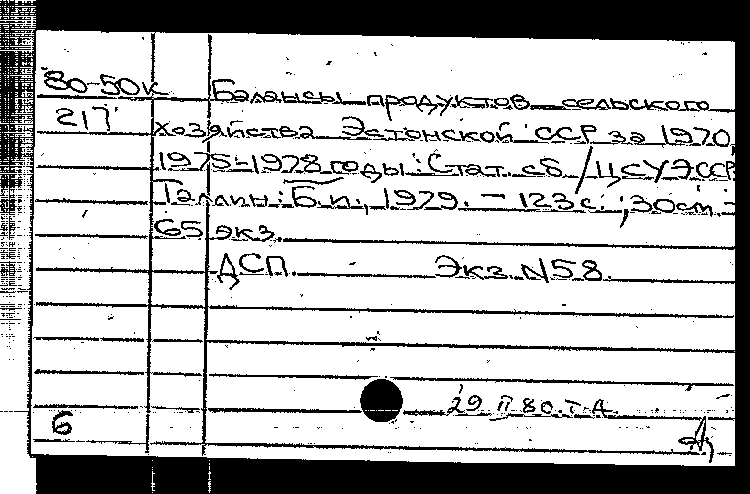 80-50к Балансы продуктов сельского
217 хозяйства Эстонской ССР за 1970,
1975-1978 годы : Стат. сб. / ЦСУ ЭССР
Таллин : Б.и., 1979. - 123 с. ; 30 см -
65 экз.
ДСП. Экз. N 58.
29 II 80. Т А
6